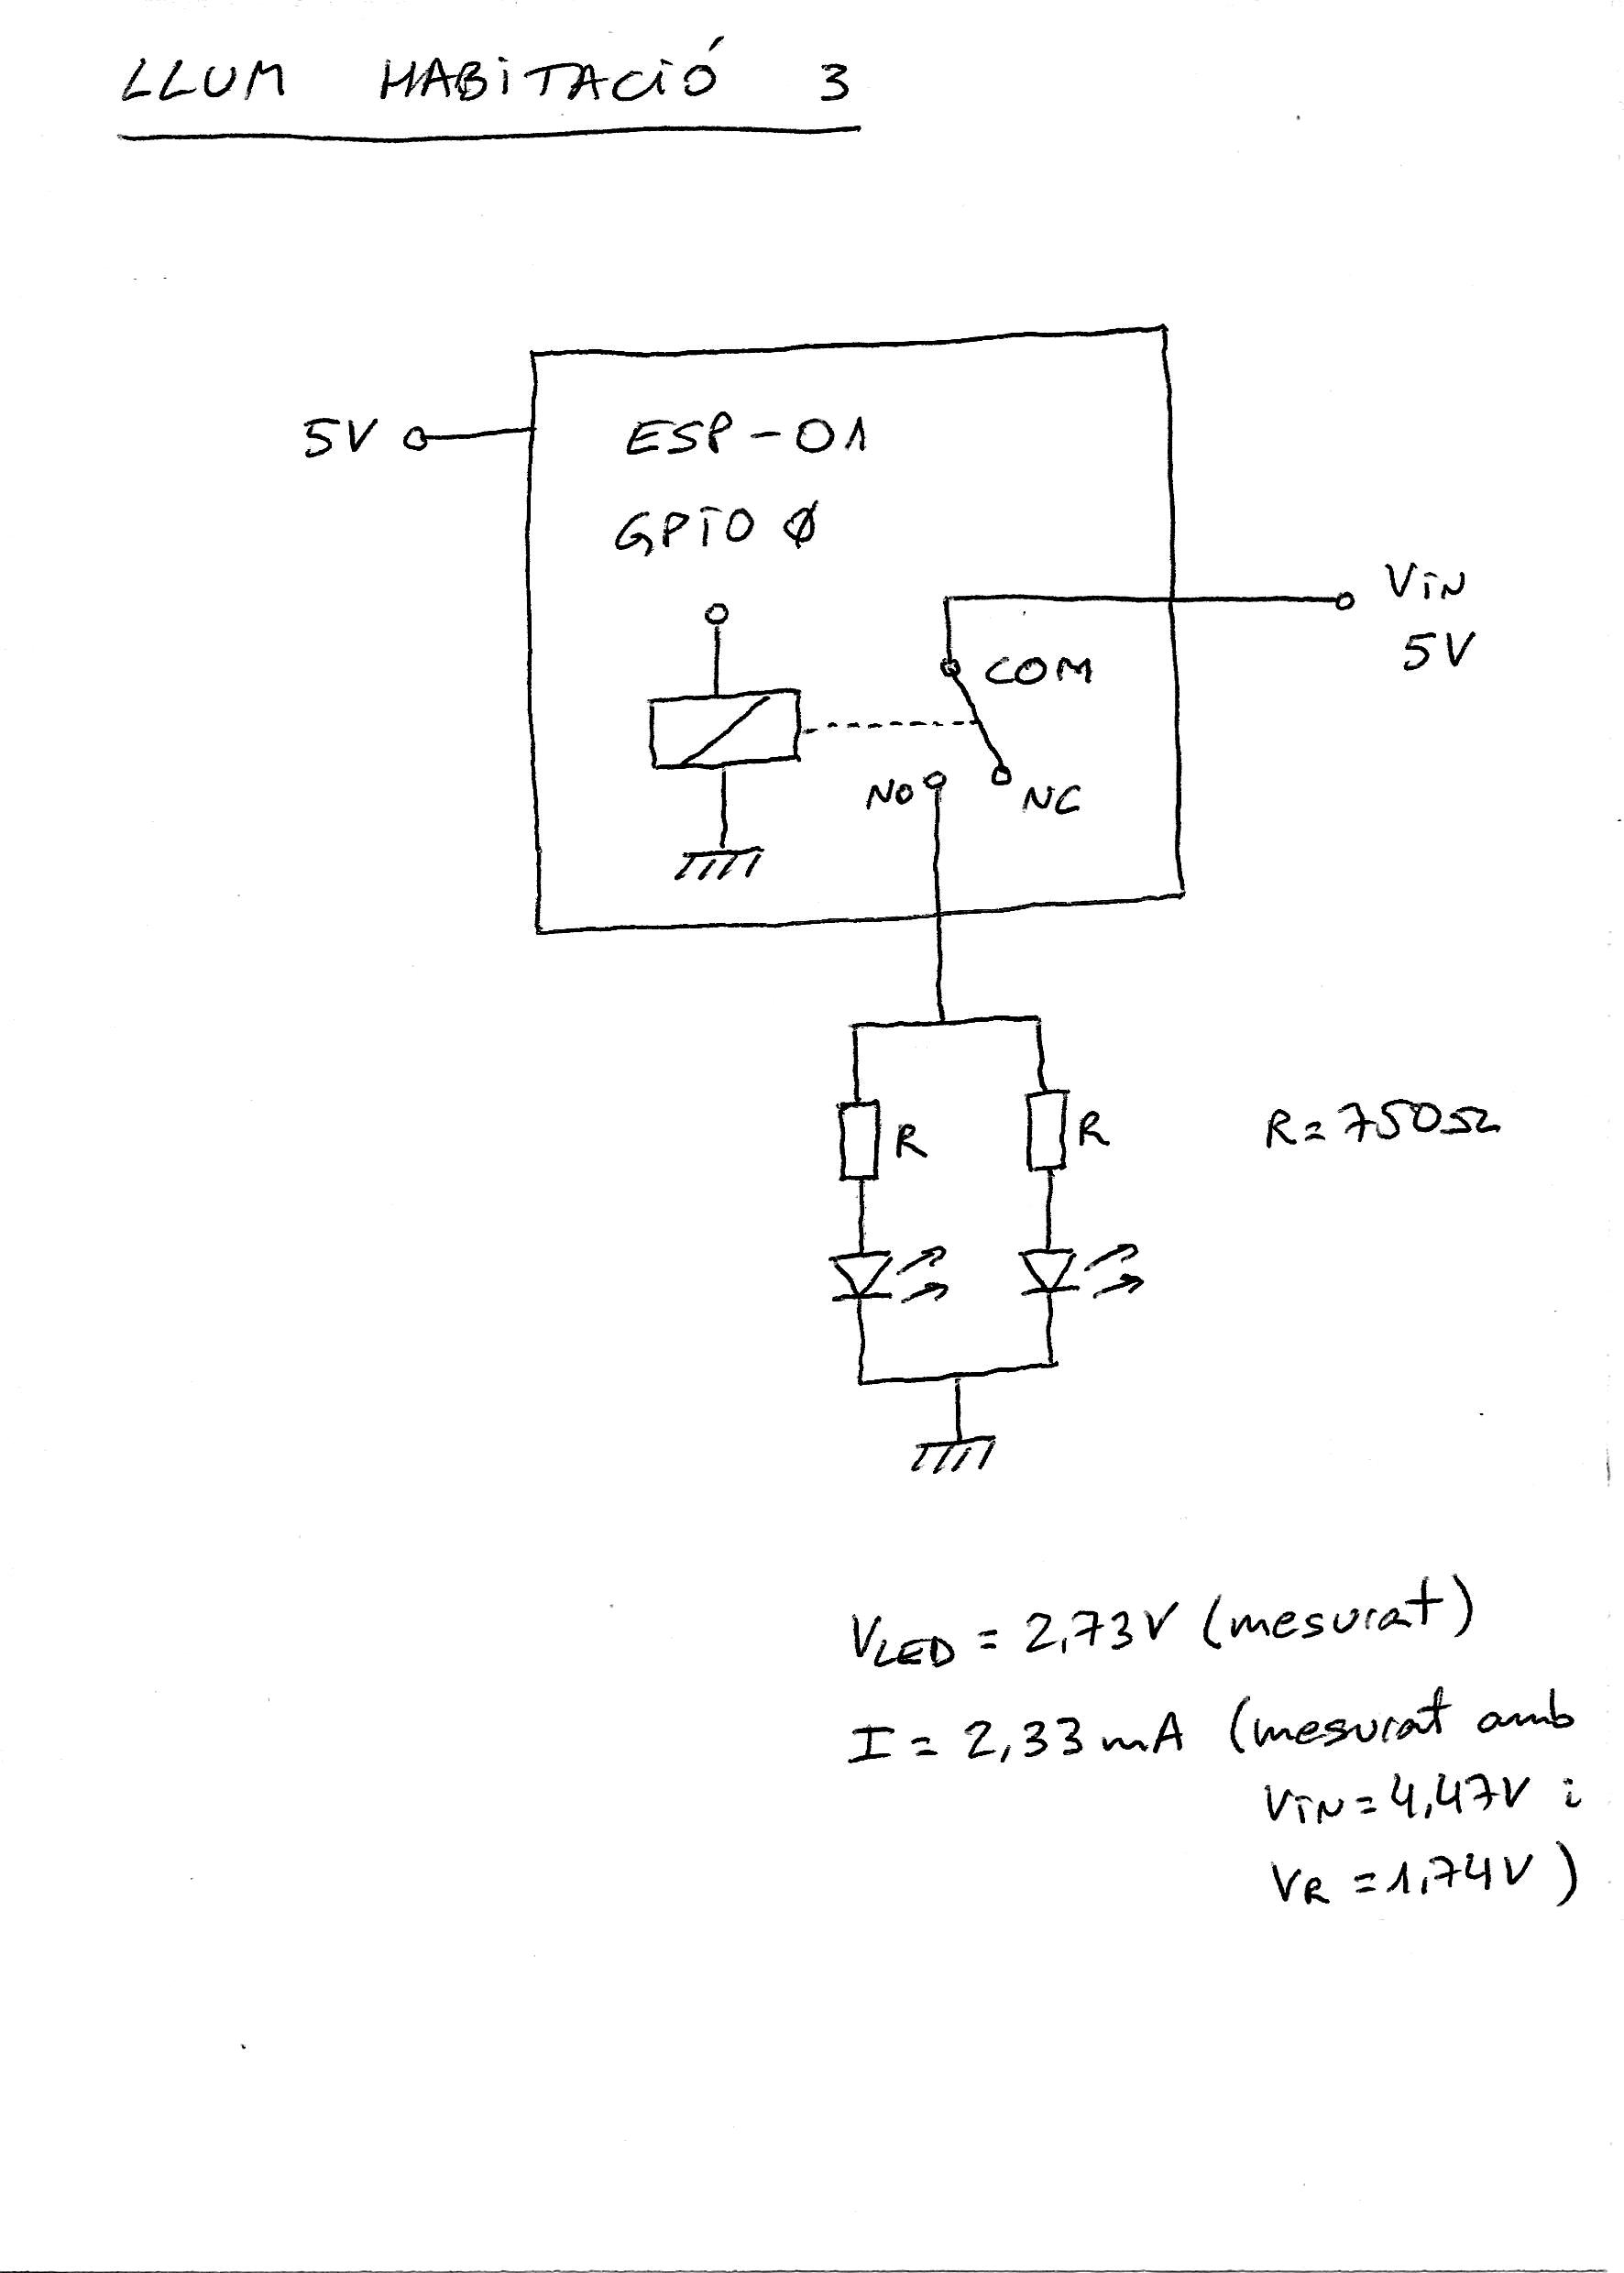 LLUM HABiTACiÓ 3
5V
ESP-01
GPIO Ø
VIN
5V
COM
NO
NC
R
R
R=750Ω
VLED = 2,73V (mesurat)
I = 2,33mA (mesurat amb
VIN=4,47V i
VR =1,74V)